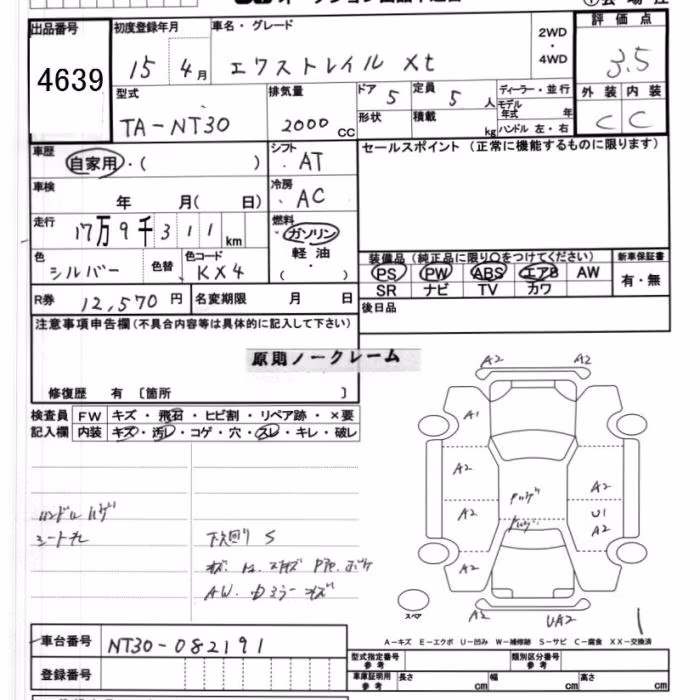 出品番号 初度登録年月 車名・グレード 2WD ・ 4WD 評価点
4639 15 4月 エクストレイル Xt 3.5
型式 排気量 ドア 5 定員 5 人 ディーラー・並行 外装 内装
TA-NT30 2000 CC 形状 積載 kg モデル年式 年 C C
ハンドル 左・右
車歴 自家用・( ) シフト AT セールスポイント (正常に機能するものに限ります)
車検 年 月( 日) 冷房 AC
走行 17万9千311 km 燃料 ガソリン
軽油
・
( )
色 シルバー 色替 色コード KX4
装備品 (純正品に限り○をつけてください) 新車保証書
PS PW ABS エアB AW 有・無
SR ナビ TV カワ
R券 12,570 円 名変期限 月 日 後日品
注意事項申告欄(不具合内容等は具体的に記入して下さい)
原則ノークレーム
修復歴 有 〔箇所 〕
検査員 FW キズ・飛石・ヒビ割・リペア跡・×要
記入欄 内装 キズ・汚レ・コゲ・穴・スレ・キレ・破レ
ハンドルハゲ
シートスレ
下廻り S
A2 A2
A1
A2 A2
A2 U1
A2
A2
A2 UA2
スペア
A-キズ E-エクボ U-凹み W-補修跡 S-サビ C-腐食 XX-交換済
車台番号 NT30-082191
登録番号
型式指定番号 参考 類別区分番号 参考
車庫証明用 参考 長さ cm 幅 cm 高さ cm